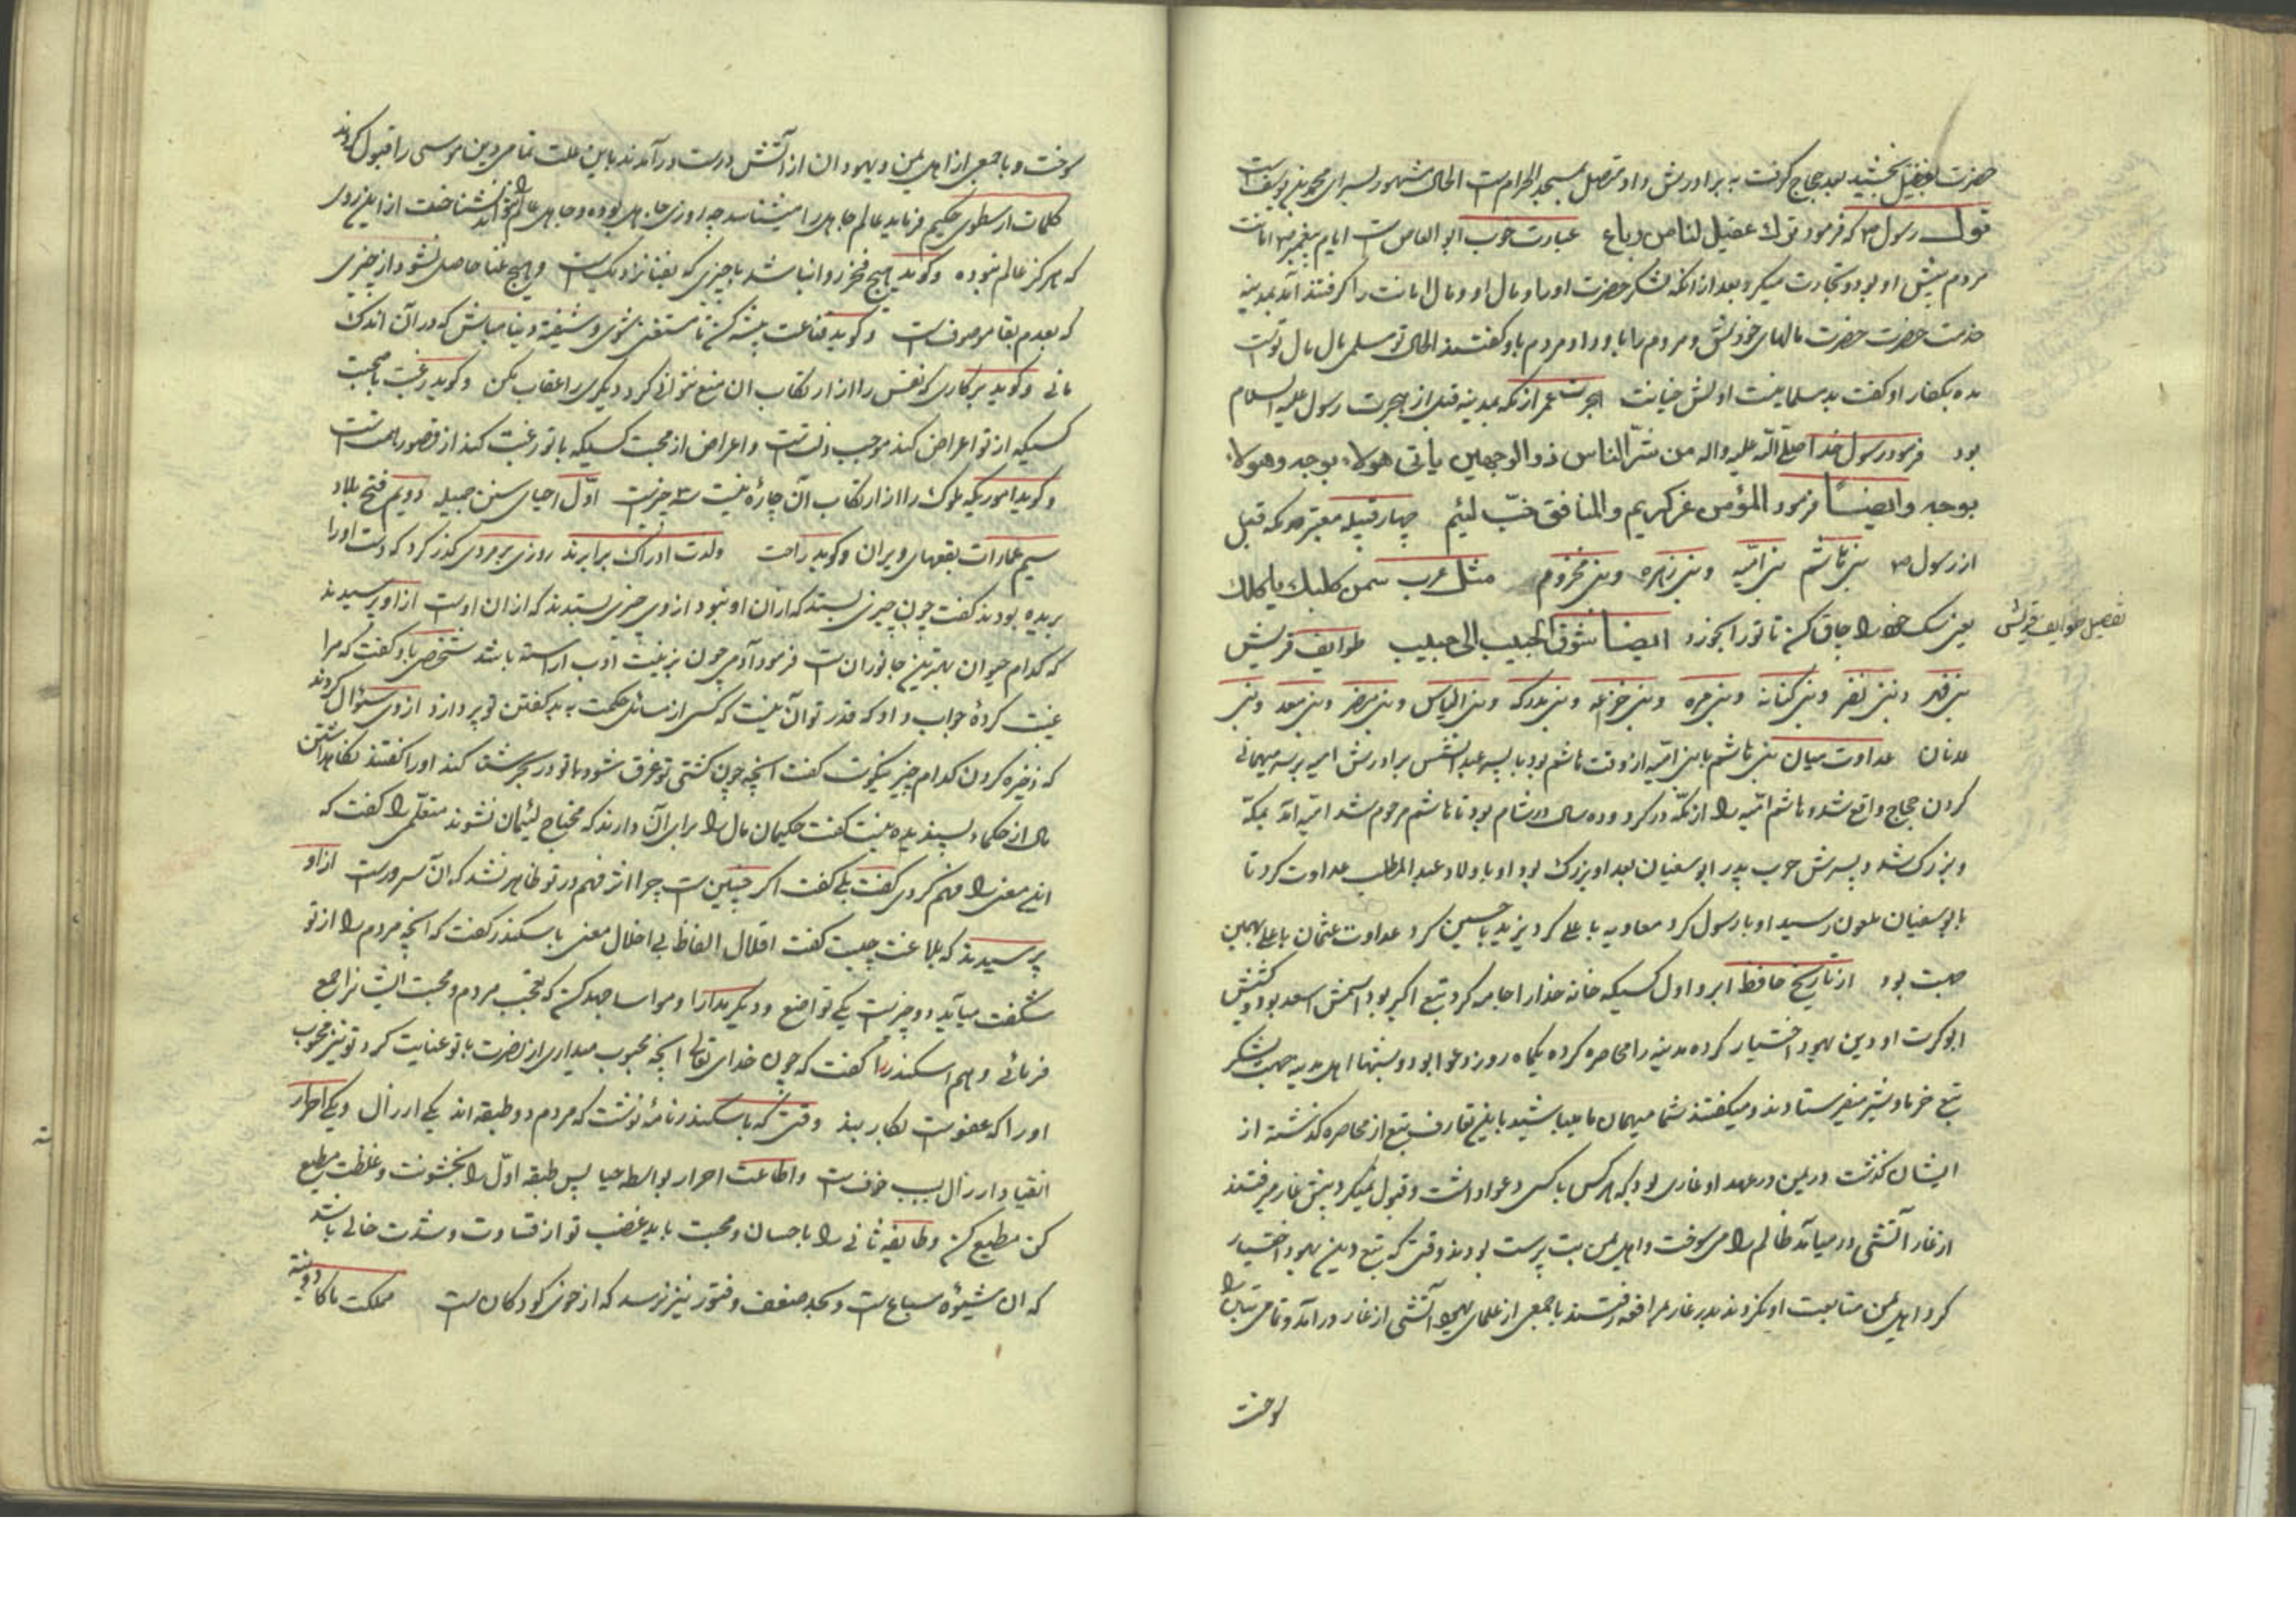 حضرت بعقیل بخشید بعد حجاج گرفت به برادرش داد و متصل بمسجد الحرام است الحال مشهور بسرای محمد بن یوسف است
قول رسول ص که فرمود ترك عقیل لنا من رباع عبارت خوب ابو العاص است ایام پیغمبر ص امانت
مردم پیش او بود و تجارت میکرد بعد از آنکه لشکر حضرت او را و مال او و مال امانت را گرفتند آمد بمدینه
خدمت حضرت حضرت مالهای خودش و مردم را باو داد مردم باو گفتند الحال تو مسلمی مال مال توست
مده بکفار او گفت بد مسلمانیست اولش خیانت هجرت عمر از مکه بمدینه قبل از هجرت رسول علیه السلام
بود فرمود رسول خدا صلی الله علیه واله من شرّ الناس ذو الوجهین یأتی هولاء بوجه وهولاء
بوجه وایضاً فرمود المؤمن غرّ کریم والمنافق خبّ لئیم چهار قبیله معتبر مکه قبل
از رسول ص بنی هاشم بنی امیّه و بنی زهره و بنی مخزوم مثل عرب سمن كلبك یأكلك
یعنی سگ خود را چاق کن تا تو را بخورد ایضاً شوق الحبیب الی حبیب طوایف قریش
تفصیل طوایف قریش
بنی فهر و بنی نضر و بنی کنانه و بنی مره و بنی خزیمه و بنی مدرکه و بنی الیاس و بنی مضر و بنی معد و بنی
عدنان عداوت میان بنی هاشم با بنی امیّه از وقت هاشم بود با پسر عبد الشمس برادرش امیه بر سر مهمانی
کردن حجاج واقع شد و هاشم امیّه را از مکّه در کرد و ده سال در شام بود تا هاشم مرحوم شد امیّه آمد بمکّه
و بزرگ شد و پسرش حرب پدر ابو سفیان بعد او بزرگ بود او با اولاد عبد المطلب عداوت کرد تا
بابو سفیان ملعون رسید او با رسول کرد معاویه با علی کرد یزید با حسین کرد عداوت عثمان با علی بهمین
جهت بود از تاریخ حافظ ابرو اول کسیکه خانه خدا را جامه کرد تبع اکبر بود اسمش اسعد بود و کنیتش
ابو کرب او دین یهود اختیار کرده مدینه را محاصره کرده یکماه روز دعوا بود و شبها اهل مدینه جهت لشکر
تبع خرما و شیر میفرستادند و میگفتند شما میهمان ما میباشید باین تعارف تبع از محاصره گذشته از
ایشان گذشت در یمن در عهد او غاری بود که هر کس با کسی دعوا داشت و قبول نمیکرد پیش غار میرفتند
از غار آتشی در میآمد ظالم را می سوخت و اهل یمن بت پرست بودند وقتی که تبع دین یهود اختیار
کرد اهل یمن متابعت او نکردند بدر غار بمرافعه رفتند با جمعی از علمای یهود آتشی از غار در آمد و تمامی بتان را
سوخت
سوخت و با جمعی از اهل یمن و یهودان از آتش درست در آمدند باین علت تمامی دین موسی را قبول کردند
کلمات ارسطوی حکیم فرماید عالم جاهل را میشناسد چه روزی جاهل بوده و جاهل عالم را نتواند شناخت از این روی
که هرگز عالم نبوده و گوید هیچ فخر روا نباشد بچیزی که بفنا نزدیک است و هیچ غنا حاصل نشود از چیزی
که بعدم بقا موصوف است و گوید قناعت پیشه کن تا مستغنی شوی و شیفته دنیا مباش که در آن اندک
مانی و گوید بر کاری که نفس را از ارتکاب آن منع نتوانی کرد دیگری را عقاب مکن و گوید رغبت بصحبت
کسیکه از تو اعراض کند موجب ذلت است و اعراض از صحبت کسیکه با تو رغبت کند از قصور همت است
و گوید اموریکه ملوک را از ارتکاب آن چاره نیست سه چیز است اوّل احیای سنن جمیله دویم فتح بلاد
سیم عمارات بقعهای ویران و گوید راحت ولدت ادراک برابرند روزی بر مردی گذر کرد که دست او را
بریده بودند گفت چون چیزی بستد که از آن او نبود از وی چیزی بستدند که از آن اوست از او پرسیدند
که کدام حیوان بهترین جانوران است فرمود آدمی چون بزینت ادب آراسته باشد شخصی باو گفت که مرا
غیبت کردهٔ جواب داد که قدر تو آن نیست که کسی از مسائل حکمت به بد گفتن تو پردازد از وی سؤال کردند
که ذخیره کردن کدام چیز نیکوست گفت آنچه چون کشتی تو غرق شود با تو در بحر شنا کند او را گفتند نگاهداشتن
مال از حکماء پسندیده نیست گفت حکیمان مال را برای آن دارند که محتاج لئیمان نشوند متعلّمی را گفت که
این معنی را فهم کردی گفت بلی گفت اگر چنین است چرا اثر فهم در تو ظاهر نشد که آن سرور است از او
پرسیدند که بلاغت چیست گفت اقلال الفاظ بی اخلال معنی باسکندر گفت که آنچه مردم را از تو
شگفت میآید دو چیز است یکی تواضع و دیگر مدارا و مواسا جهد کن که تعجب مردم و محبت ایشان را جمع
فرمائی و هم اسکندر را گفت که چون خدای تعالی آنچه محبوب میداری از نصرت با تو عنایت کرد تو نیز محبوب
او را که عفو است بکار بند وقتی که باسکندر نامهٔ نوشت که مردم دو طبقه اند یکی ارزال و یکی احرار
انقیاد ارزال بسبب خوف است و اطاعت احرار بواسطه حیا پس طبقه اوّل را بخشونت و غلظت مطیع
کن مطیع کن و طایفه ثانی را باحسان و محبت باید غضب تو از قساوت و شدت خالی باشد
که آن شیوهٔ سباع است و بحد ضعف و فتور نیز نرسد که از خوی کودکان است مملکت ما کان